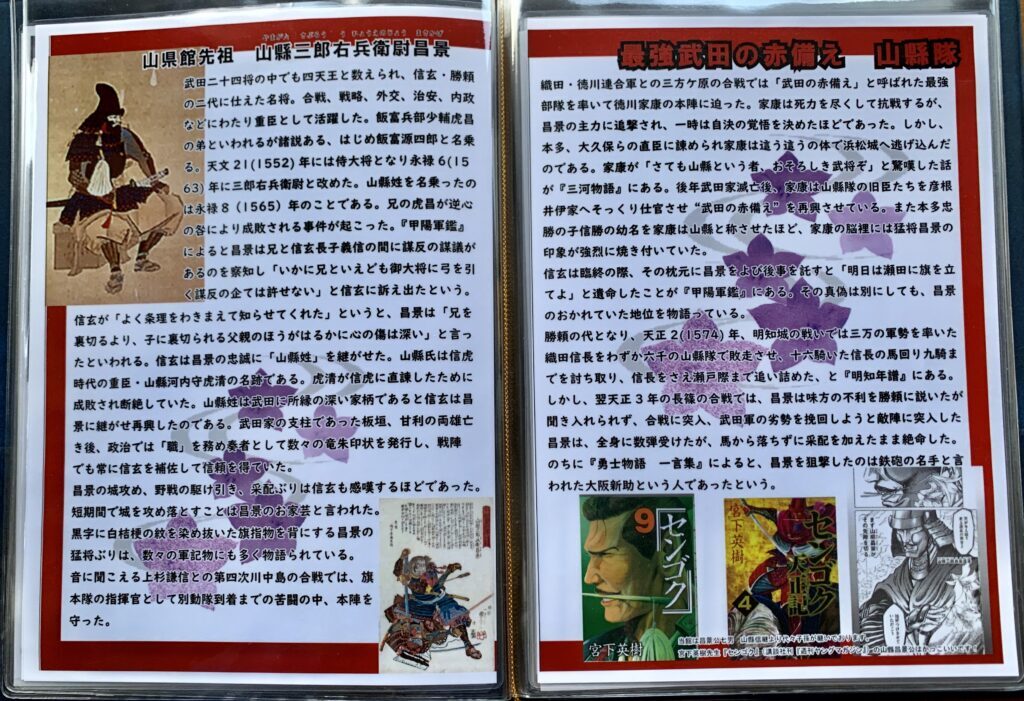 やまがた さぶろう うひょうえのじょう まさかげ
山県館先祖 山縣三郎右兵衛尉昌景
武田二十四将の中でも四天王と数えられ、信玄・勝頼
の二代に仕えた名将。合戦、戦略、外交、治安、内政
などにわたり重臣として活躍した。飯富兵部少輔虎昌
の弟といわれるが諸説ある、はじめ飯富源四郎と名乗
る。天文21(1552)年には侍大将となり永禄6(15
63)年に三郎右兵衛尉と改めた。山縣姓を名乗ったの
は永禄8(1565)年のことである。兄の虎昌が逆心
の咎により成敗される事件が起こった。『甲陽軍鑑』
によると昌景は兄と信玄長子義信の間に謀反の謀議が
あるのを察知し「いかに兄といえども御大将に弓を引
く謀反の企ては許せない」と信玄に訴え出たという。
信玄が「よく条理をわきまえて知らせてくれた」というと、昌景は「兄を
裏切るより、子に裏切られる父親のほうがはるかに心の傷は深い」と言っ
たといわれる。信玄は昌景の忠誠に「山縣姓」を継がせた。山縣氏は信虎
時代の重臣・山縣河内守虎清の名跡である。虎清が信虎に直諫したために
成敗され断絶していた。山縣姓は武田に所縁の深い家柄であると信玄は昌
景に継がせ再興したのである。武田家の支柱であった板垣、甘利の両雄亡
き後、政治では「職」を務め奏者として数々の竜朱印状を発行し、戦陣
でも常に信玄を補佐して信頼を得ていた。
昌景の城攻め、野戦の駆け引き、采配ぶりは信玄も感嘆するほどであった。
短期間で城を攻め落とすことは昌景のお家芸と言われた。
黒字に白桔梗の紋を染め抜いた旗指物を背にする昌景の
猛将ぶりは、数々の軍記物にも多く物語られている。
音に聞こえる上杉謙信との第四次川中島の合戦では、旗
本隊の指揮官として別動隊到着までの苦闘の中、本陣を
守った。
最強武田の赤備え 山縣隊
織田・徳川連合軍との三方ケ原の合戦では「武田の赤備え」と呼ばれた最強
部隊を率いて徳川家康の本陣に迫った。家康は死力を尽くして抗戦するが、
昌景の主力に追撃され、一時は自決の覚悟を決めたほどであった。しかし、
本多、大久保らの直臣に諫められ家康は這う這うの体で浜松城へ逃げ込んだ
のである。家康が「さても山縣という者、おそろしき武将ぞ」と驚嘆した話
が『三河物語』にある。後年武田家滅亡後、家康は山縣隊の旧臣たちを彦根
井伊家へそっくり仕官させ“武田の赤備え”を再興させている。また本多忠
勝の子信勝の幼名を家康は山縣と称させたほど、家康の脳裡には猛将昌景の
印象が強烈に焼き付いていた。
信玄は臨終の際、その枕元に昌景をよび後事を託すと「明日は瀬田に旗を立
てよ」と遺命したことが『甲陽軍鑑』にある。その真偽は別にしても、昌景
のおかれていた地位を物語っている。
勝頼の代となり、天正2(1574)年、明知城の戦いでは三万の軍勢を率いた
織田信長をわずか六千の山縣隊で敗走させ、十六騎いた信長の馬回り九騎ま
でを討ち取り、信長をさえ瀬戸際まで追い詰めた、と『明知年譜』にある。
しかし、翌天正3年の長篠の合戦では、昌景は味方の不利を勝頼に説いたが
聞き入れられず、合戦に突入、武田軍の劣勢を挽回しようと敵陣に突入した
昌景は、全身に数弾受けたが、馬から落ちずに采配を加えたまま絶命した。
のちに『勇士物語 一言集』によると、昌景を狙撃したのは鉄砲の名手と言
われた大阪新助という人であったという。
9
センゴク
宮下英樹
宮下英樹
センゴク
天正記
4
当館は昌景公七男 山縣信継より代々子孫が継いでおります。
宮下英樹先生『センゴク』(講談社刊『週刊ヤングマガジン』)の山縣昌景公はかっこいいです!